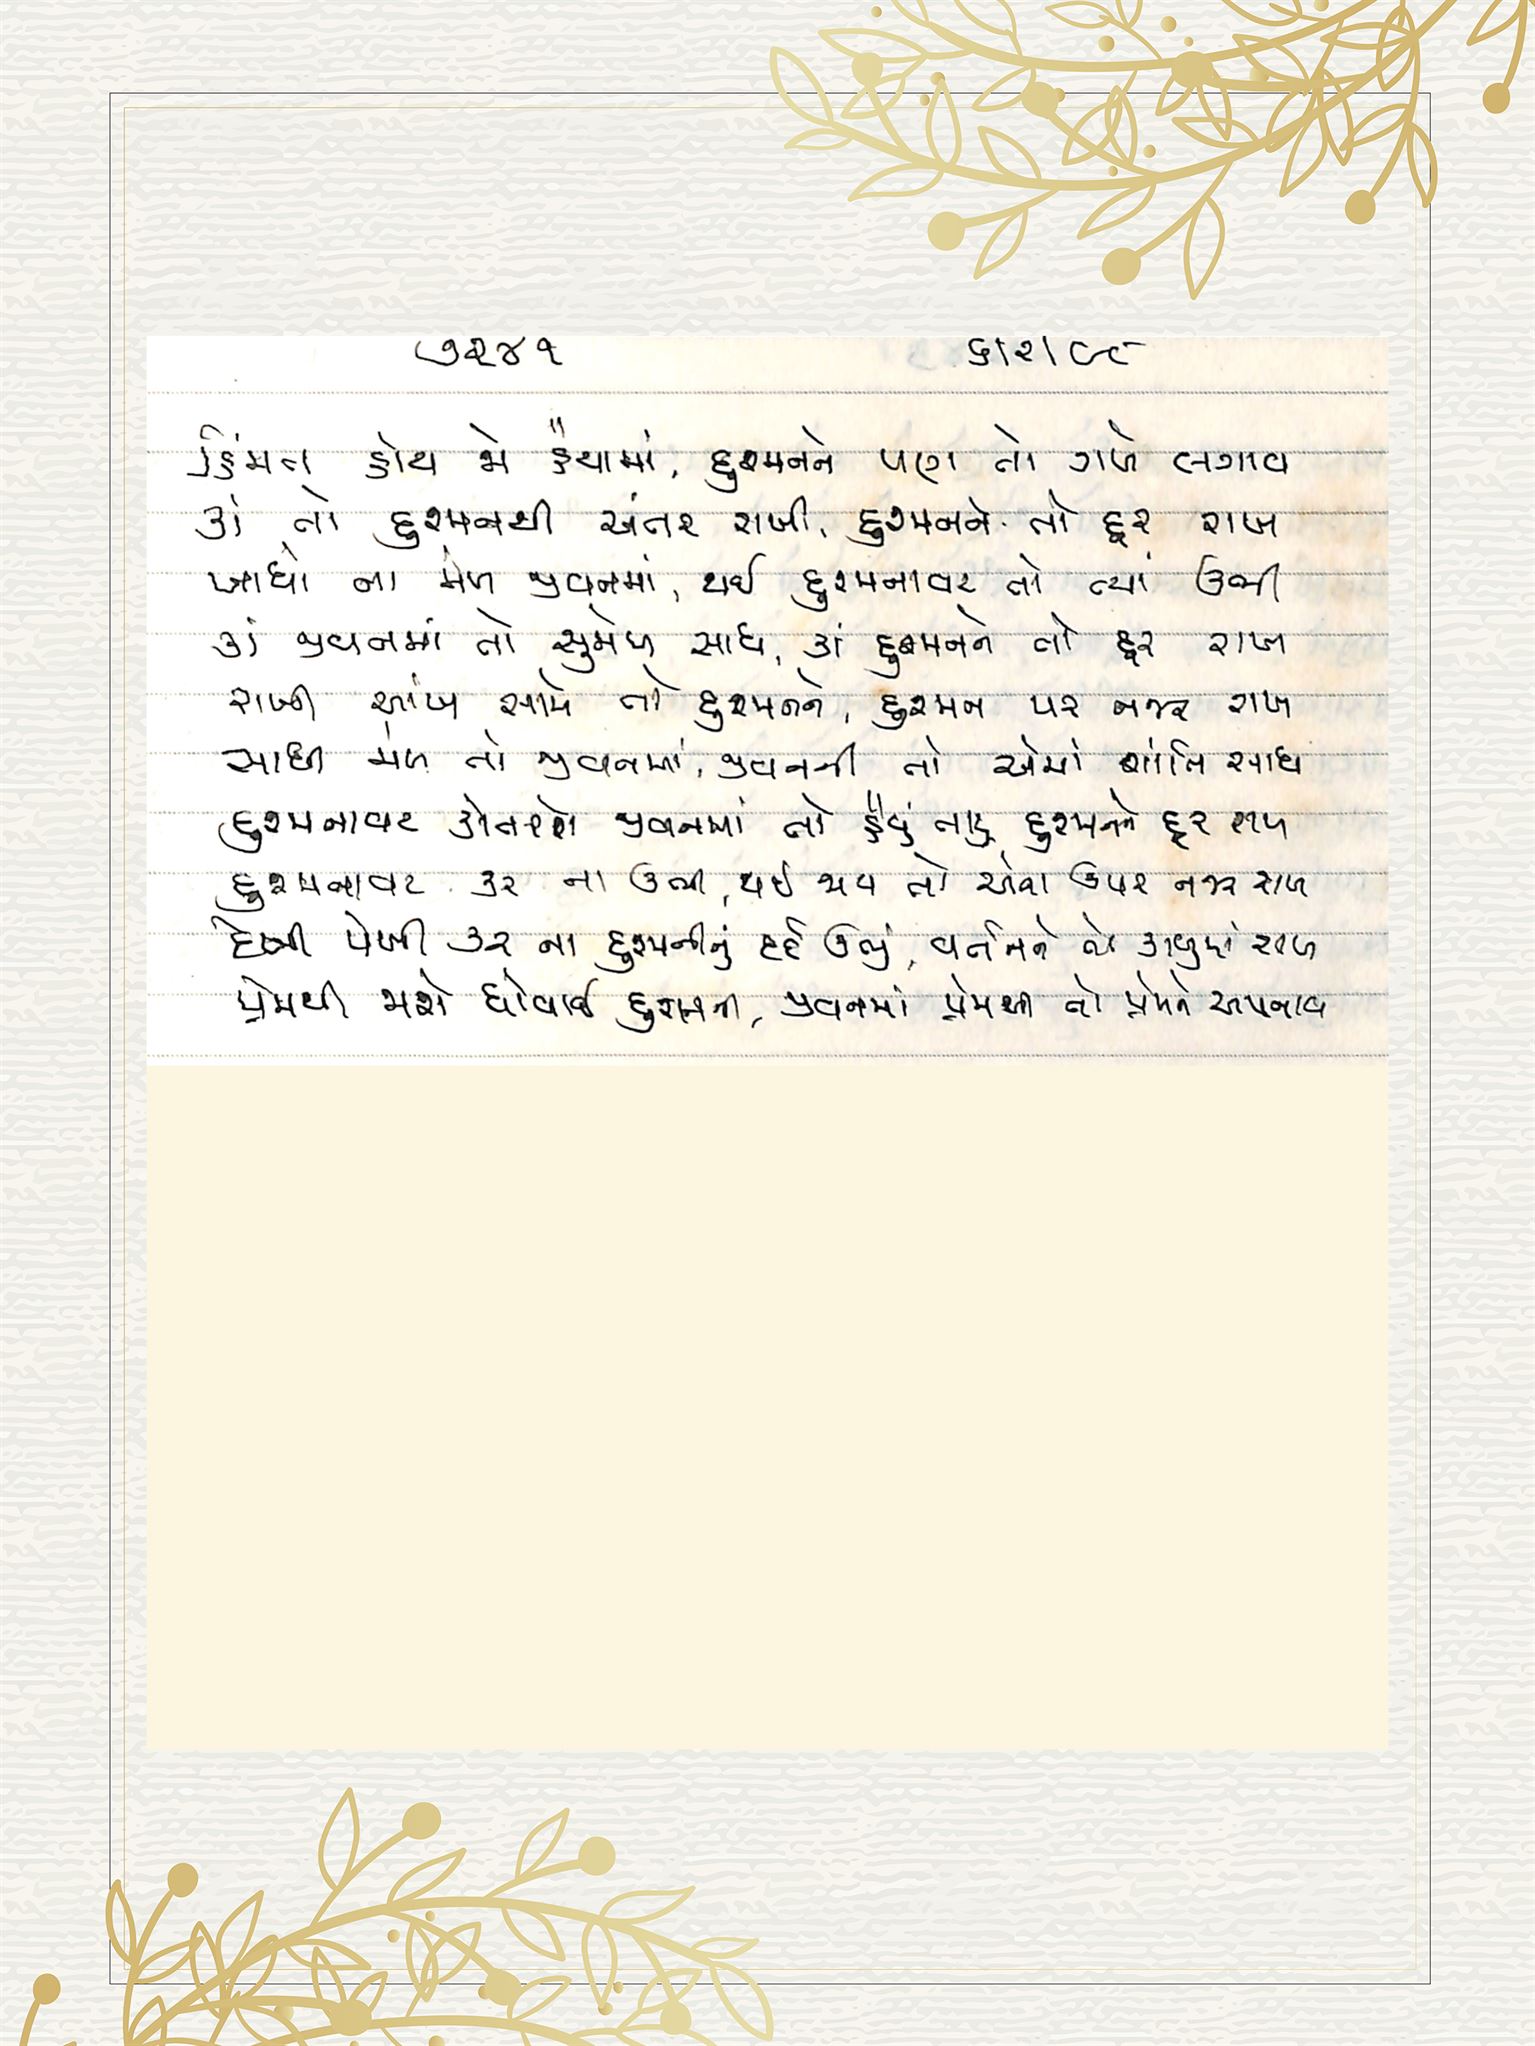 ૭૨૪૧ ૬।૨।૯૮
હિંમત હોય જો હૈયામાં, દુશ્મનને પણ તો ગળે લગાવ
કાં તો દુશ્મનથી અંતર રાખી, દુશ્મનને તો દૂર રાખ
ખાધો ના મેળ જીવનમાં, થઈ દુશ્મનાવટ તો ત્યાં ઉભી
કાં જીવનમાં તો સુમેળ સાધ, કાં દુશ્મનને તો દૂર રાખ
રાખી આંખ સામે તો દુશ્મનને, દુશ્મન પર નજર રાખ
સાધી મેળ તો જીવનમાં, જીવનની તો એમાં શાંતિ સાધ
દુશ્મનાવટ કોતરશે જીવનમાં તો હૈયું તારું દુશ્મનને દૂર રાખ
દુશ્મનાવટ કર ના ઉભી, થઈ જાય તો એના ઉપર નજર રાખ
દેખી પેખી કર ના દુશ્મનીનું દર્દ ઉભું, વર્તનને તો કાબુમાં રાખ
પ્રેમથી જાશે ધોવાઈ દુશ્મની, જીવનમાં પ્રેમથી તો પ્રેમને અપનાવ